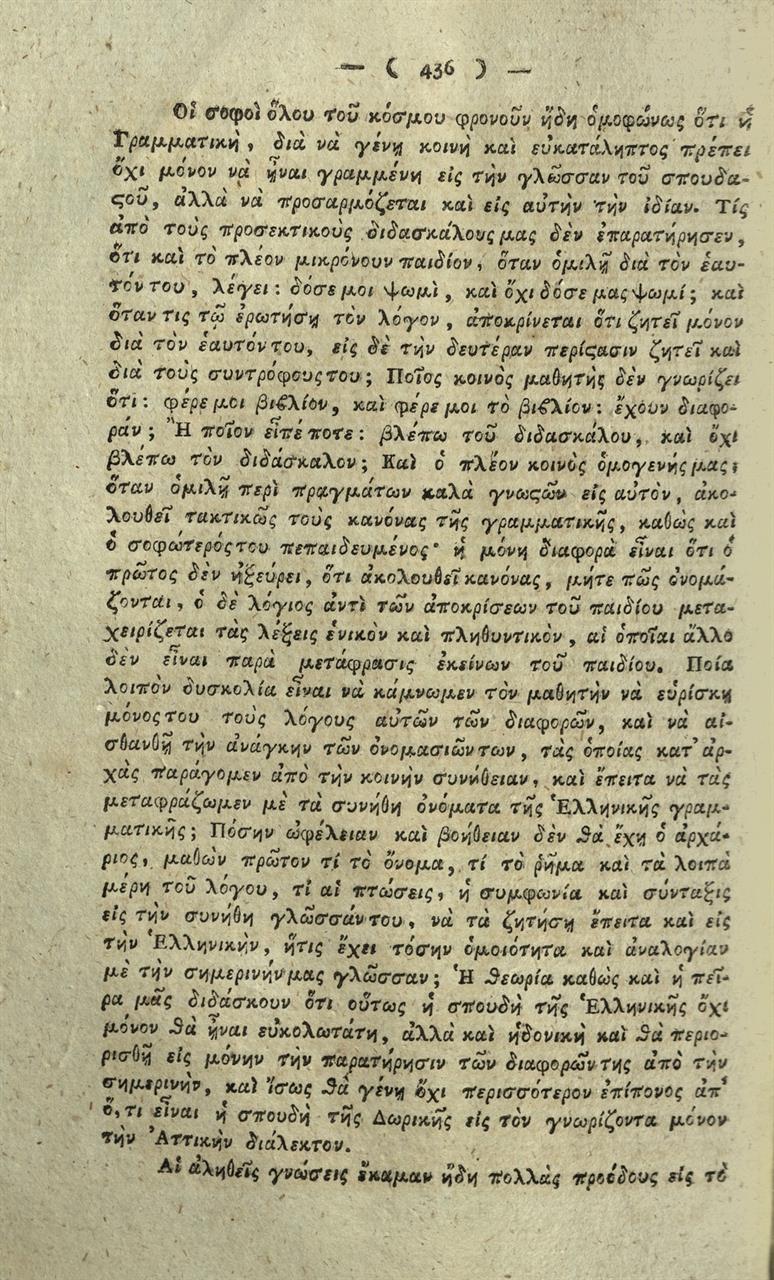 — ( 436 ) —
Οἱ σοφοὶ ὅλου τοῦ κόσμου φρονοῦν ἤδη ὁμοφώνως ὅτι ἡ
Γραμματικὴ, διὰ νὰ γένῃ κοινὴ καὶ εὐκατάληπτος πρέπει
ὄχι μόνον νὰ ᾖναι γραμμένη εἰς τὴν γλῶσσαν τοῦ σπουδα-
ϛοῦ, ἀλλὰ νὰ προσαρμόζεται καὶ εἰς αὐτὴν τὴν ἰδίαν. Τίς
ἀπὸ τοὺς προσεκτικοὺς διδασκάλους μας δὲν ἐπαρατήρησεν,
ὅτι καὶ τὸ πλέον μικρόνουν παιδίον, ὅταν ὁμιλῇ διὰ τὸν ἑαυ-
τόν του, λέγει: δόσε μοι ψωμὶ, καὶ ὄχι δόσε μας ψωμί; καὶ
ὅταν τις τῷ ἐρωτήσῃ τὸν λόγον, ἀποκρίνεται ὅτι ζητεῖ μόνον
διὰ τὸν ἑαυτόν του, εἰς δὲ τὴν δευτέραν περίϛασιν ζητεῖ καὶ
διὰ τοὺς συντρόφους του; Ποῖος κοινὸς μαθητὴς δὲν γνωρίζει
ὅτι: φέρε μοι βιϐλίον, καὶ φέρε μοι τὸ βιϐλίον: ἔχουν διαφο-
ράν; Ἢ ποῖον εἶπέ ποτε: βλέπω τοῦ διδασκάλου, καὶ ὄχι
βλέπω τὸν διδάσκαλον; Καὶ ὁ πλέον κοινὸς ὁμογενής μας,
ὅταν ὁμιλῇ περὶ πραγμάτων καλὰ γνωϛῶν εἰς αὐτὸν, ἀκο-
λουθεῖ τακτικῶς τοὺς κανόνας τῆς γραμματικῆς, καθὼς καὶ
ὁ σοφώτερός του πεπαιδευμένος· ἡ μόνη διαφορὰ εἶναι ὅτι ὁ
πρῶτος δὲν ἠξεύρει, ὅτι ἀκολουθεῖ κανόνας, μήτε πῶς ὀνομά-
ζονται, ὁ δὲ λόγιος ἀντὶ τῶν ἀποκρίσεων τοῦ παιδίου μετα-
χειρίζεται τὰς λέξεις ἑνικὸν καὶ πληθυντικὸν, αἱ ὁποῖαι ἄλλο
δὲν εἶναι παρὰ μετάφρασις ἐκείνων τοῦ παιδίου. Ποία
λοιπὸν δυσκολία εἶναι νὰ κάμνωμεν τὸν μαθητὴν νὰ εὑρίσκῃ
μόνος του τοὺς λόγους αὐτῶν τῶν διαφορῶν, καὶ νὰ αἰ-
σθανθῇ τὴν ἀνάγκην τῶν ὀνομασιῶν των, τὰς ὁποίας κατ' ἀρ-
χὰς παράγομεν ἀπὸ τὴν κοινὴν συνήθειαν, καὶ ἔπειτα νὰ τὰς
μεταφράζωμεν μὲ τὰ συνήθη ὀνόματα τῆς Ἑλληνικῆς γραμ-
ματικῆς; Πόσην ὠφέλειαν καὶ βοήθειαν δὲν θὰ ἔχῃ ὁ ἀρχά-
ριος, μαθὼν πρῶτον τί τὸ ὄνομα, τί τὸ ῥῆμα καὶ τὰ λοιπὰ
μέρη τοῦ λόγου, τί αἱ πτώσεις, ἡ συμφωνία καὶ σύνταξις
εἰς τὴν συνήθη γλῶσσάν του, νὰ τὰ ζητήσῃ ἔπειτα καὶ εἰς
τὴν Ἑλληνικὴν, ἥτις ἔχει τόσην ὁμοιότητα καὶ ἀναλογίαν
μὲ τὴν σημερινήν μας γλῶσσαν; Ἡ θεωρία καθὼς καὶ ἡ πεῖ-
ρα μᾶς διδάσκουν ὅτι οὕτως ἡ σπουδὴ τῆς Ἑλληνικῆς ὄχι
μόνον θὰ ᾖναι εὐκολωτάτη, ἀλλὰ καὶ ἡδονικὴ καὶ θὰ περιο-
ρισθῇ εἰς μόνην τὴν παρατήρησιν τῶν διαφορῶν της ἀπὸ τὴν
σημερινὴν, καὶ ἴσως θὰ γένῃ ὄχι περισσότερον ἐπίπονος ἀπ'
ὅ,τι εἶναι ἡ σπουδὴ τῆς Δωρικῆς εἰς τὸν γνωρίζοντα μόνον
τὴν Ἀττικὴν διάλεκτον.
Αἱ ἀληθεῖς γνώσεις ἔκαμαν ἤδη πολλὰς προόδους εἰς τὸ